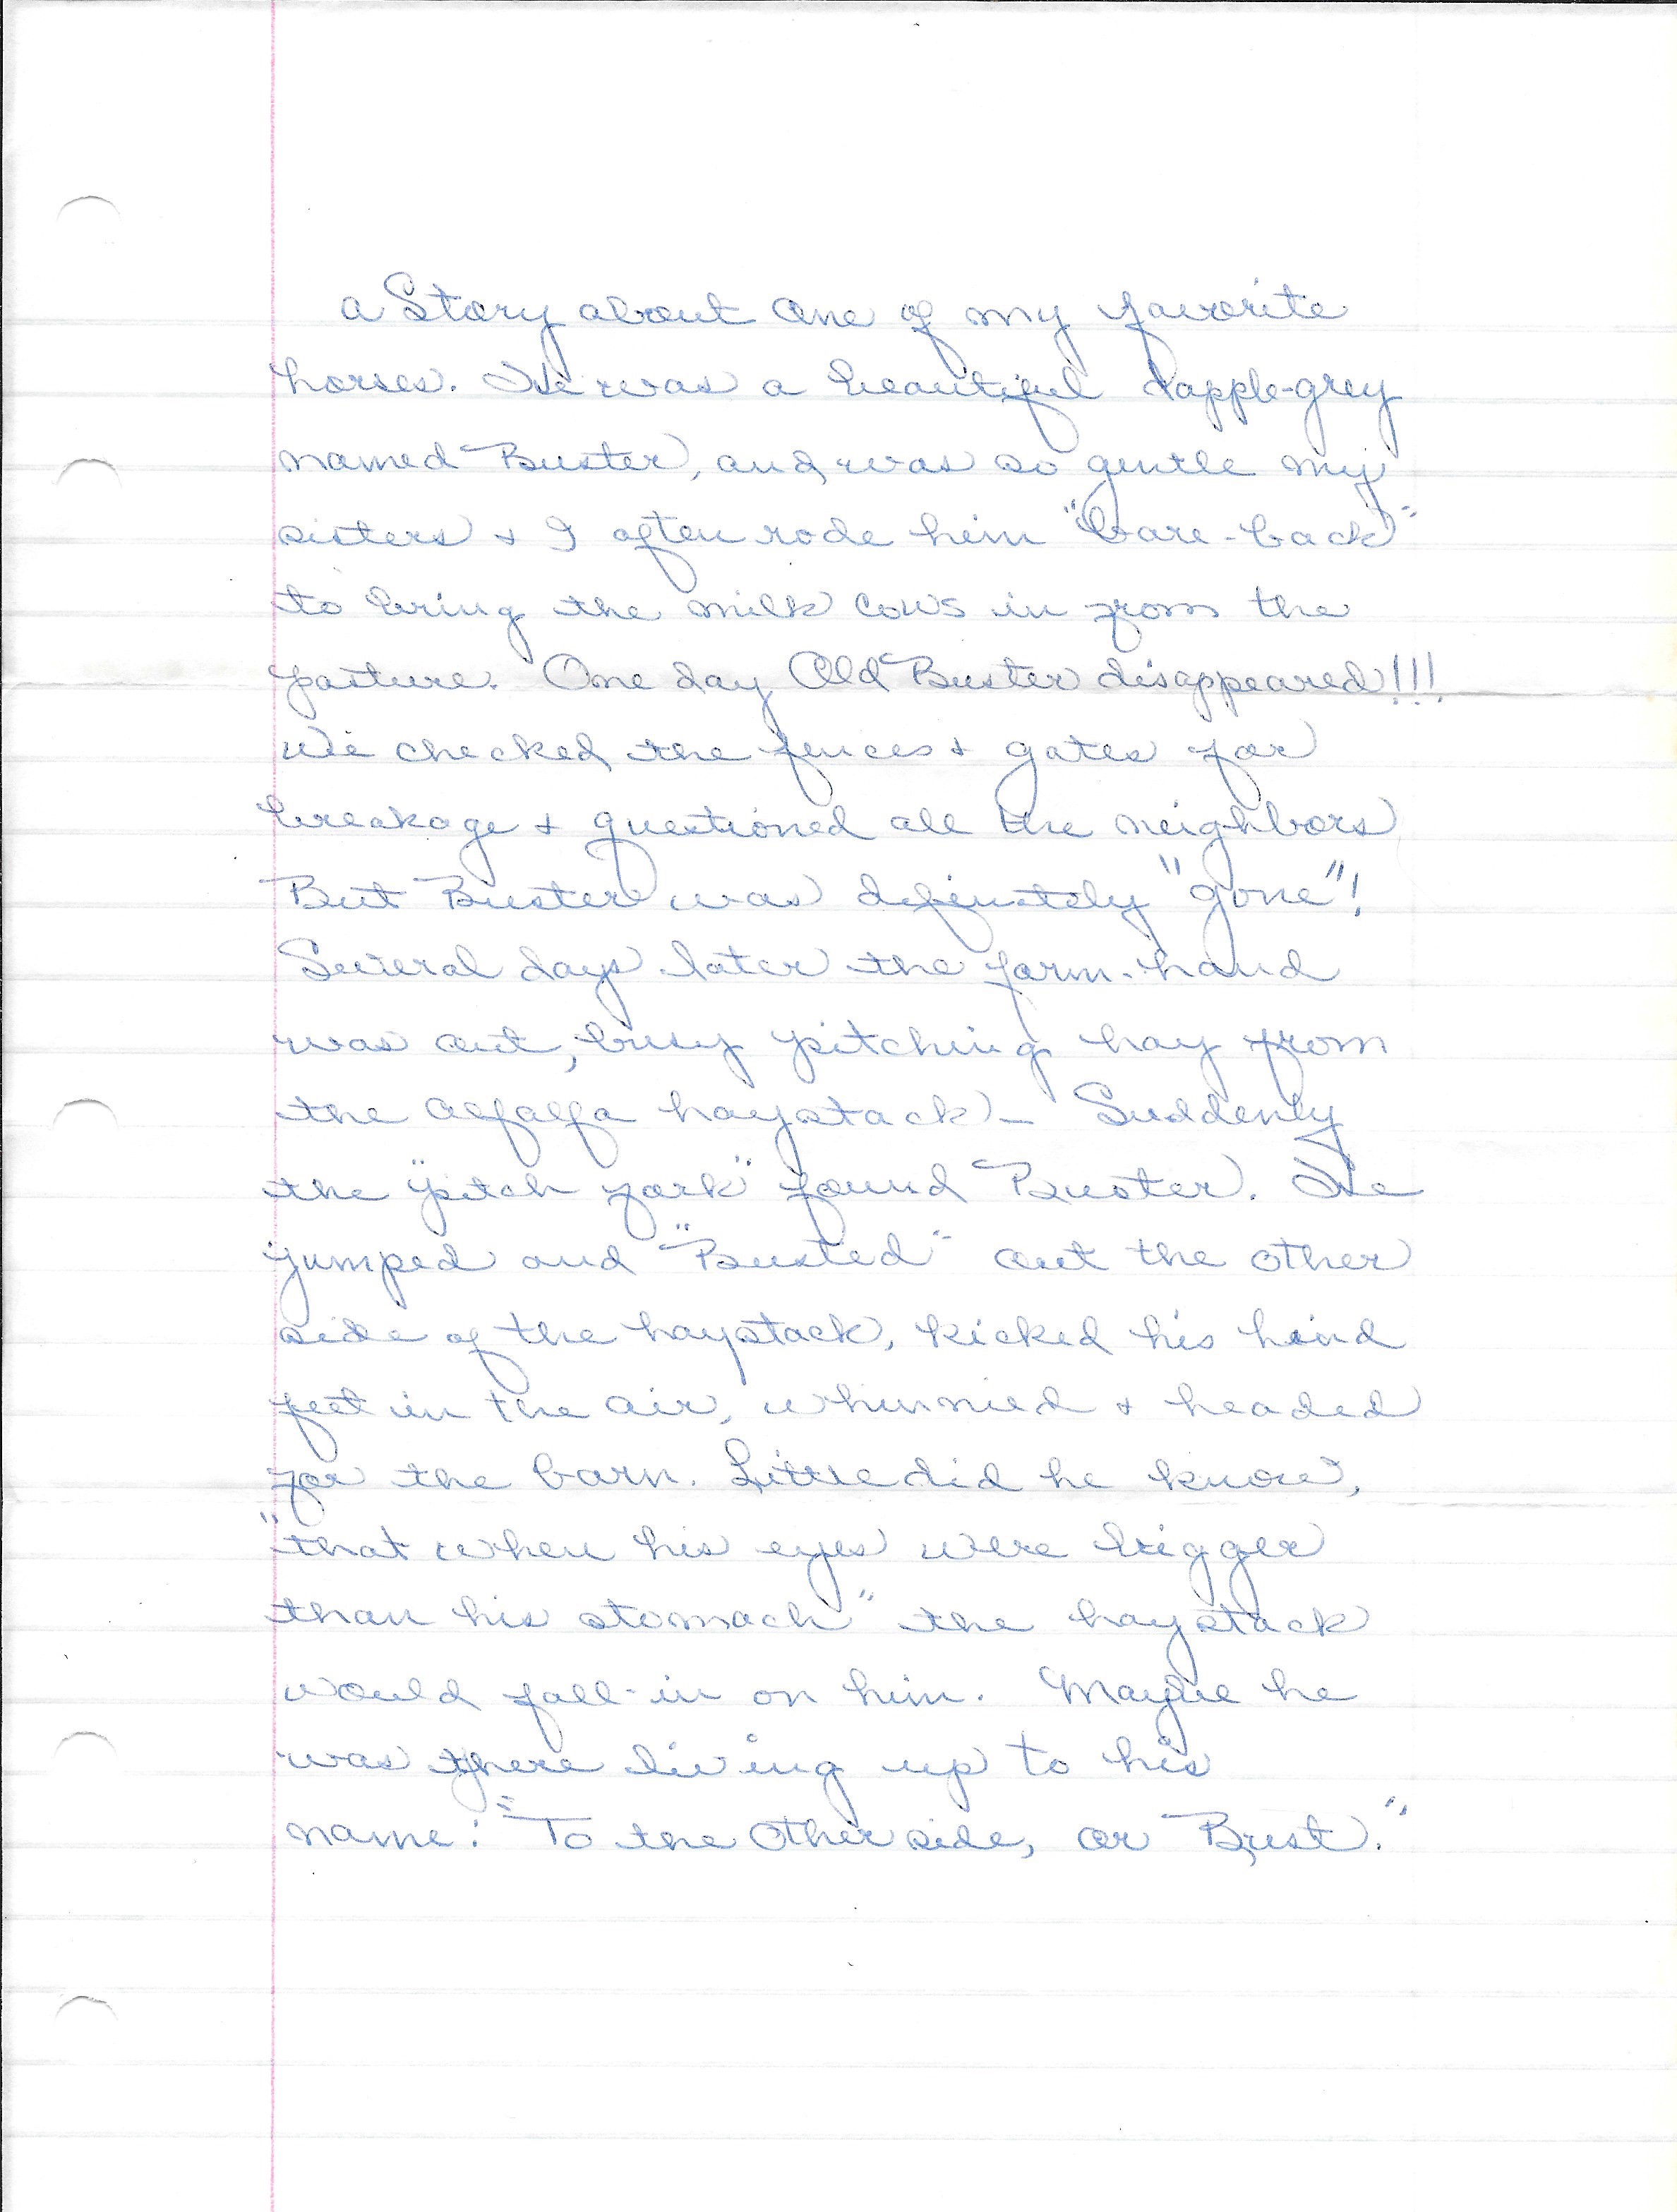 a Story about one of my favorite
horses. He was a beautiful dapple-grey
named Buster, and was so gentle my
sisters & I often rode him "bare-back"
to bring the milk cows in from the
pasture. One day Old Buster disappeared!!!
We checked the fences & gates for
breakage & questioned all the neighbors
But Buster was definitely "gone"!
Several days later the farm-hand
was out, busy pitching hay from
the alfalfa haystack - Suddenly
the "pitch fork" found Buster. He
jumped and "Busted" out the other
side of the haystack, kicked his hind
feet in the air, whinnied & headed
for the barn. Little did he know,
"that when his eyes were bigger
than his stomach" the haystack
would fall-in on him. Maybe he
was there living up to his
name: "To the other side, or Bust."